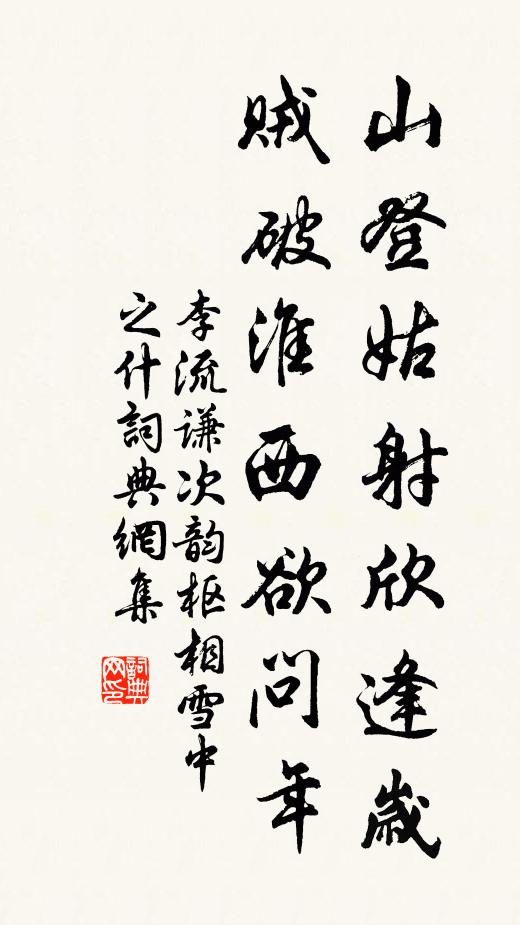 山登姑射欣逢歲
賊破淮西欲問年
李流謙次韵枢相雪中
之什詞典網集
詞典网印